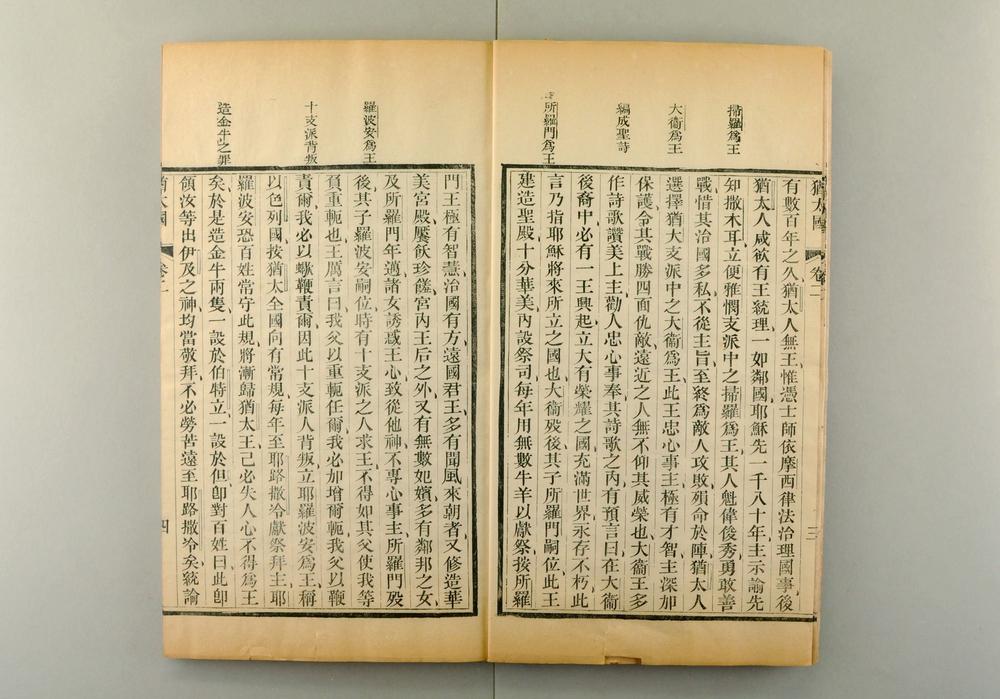 掃羅爲王
大衞爲王
編成聖詩
所羅門爲王
猶太國 卷二 三
有數百年之久猶太人無王惟憑士師依摩西律法治理國事後
猶太人咸欲有王統理一如鄰國耶穌先一千八十年主示諭先
知撒木耳立便雅憫支派中之掃羅爲王其人魁偉俊秀勇敢善
戰惜其治國多私不從主旨至終爲敵人攻敗殞命於陣猶太人
選擇猶大支派中之大衞爲王此王忠心事主極有才智主深加
保護令其戰勝四面仇敵遠近之人無不仰其威榮也大衞王多
作詩歌讚美上主勸人忠心事奉其詩歌之內有預言曰在大衞
後裔中必有一王興起立大有榮耀之國充滿世界永存不朽此
言乃指耶穌將來所立之國也大衞殁後其子所羅門嗣位此王
建造聖殿十分華美內設祭司每年用無數牛羊以獻祭按所羅
羅波安爲王
十支派背叛
造金牛之罪
門王極有智慧治國有方遠國君王多有聞風來朝者又修造華
美宮殿饜飫珍饈宮內王后之外又有無數妃嬪多有鄰邦之女
及所羅門年邁諸女誘惑王心致從他神不專心事主所羅門殁
後其子羅波安嗣位時有十支派之人求王不得如其父使我等
負重軛也王厲言曰我父以重軛任爾我必加增爾軛我父以鞭
責爾我必以蠍鞭責爾因此十支派人背叛立耶羅波安爲王稱
以色列國按猶太全國向有常規每年至耶路撒冷獻祭拜主耶
羅波安恐百姓常守此規將漸歸猶太王己必失人心不得爲王
矣於是造金牛兩隻一設於伯特立一設於但卽對百姓曰此卽
領汝等出伊及之神均當敬拜不必勞苦遠至耶路撒冷矣統論
猶太國 卷二 四